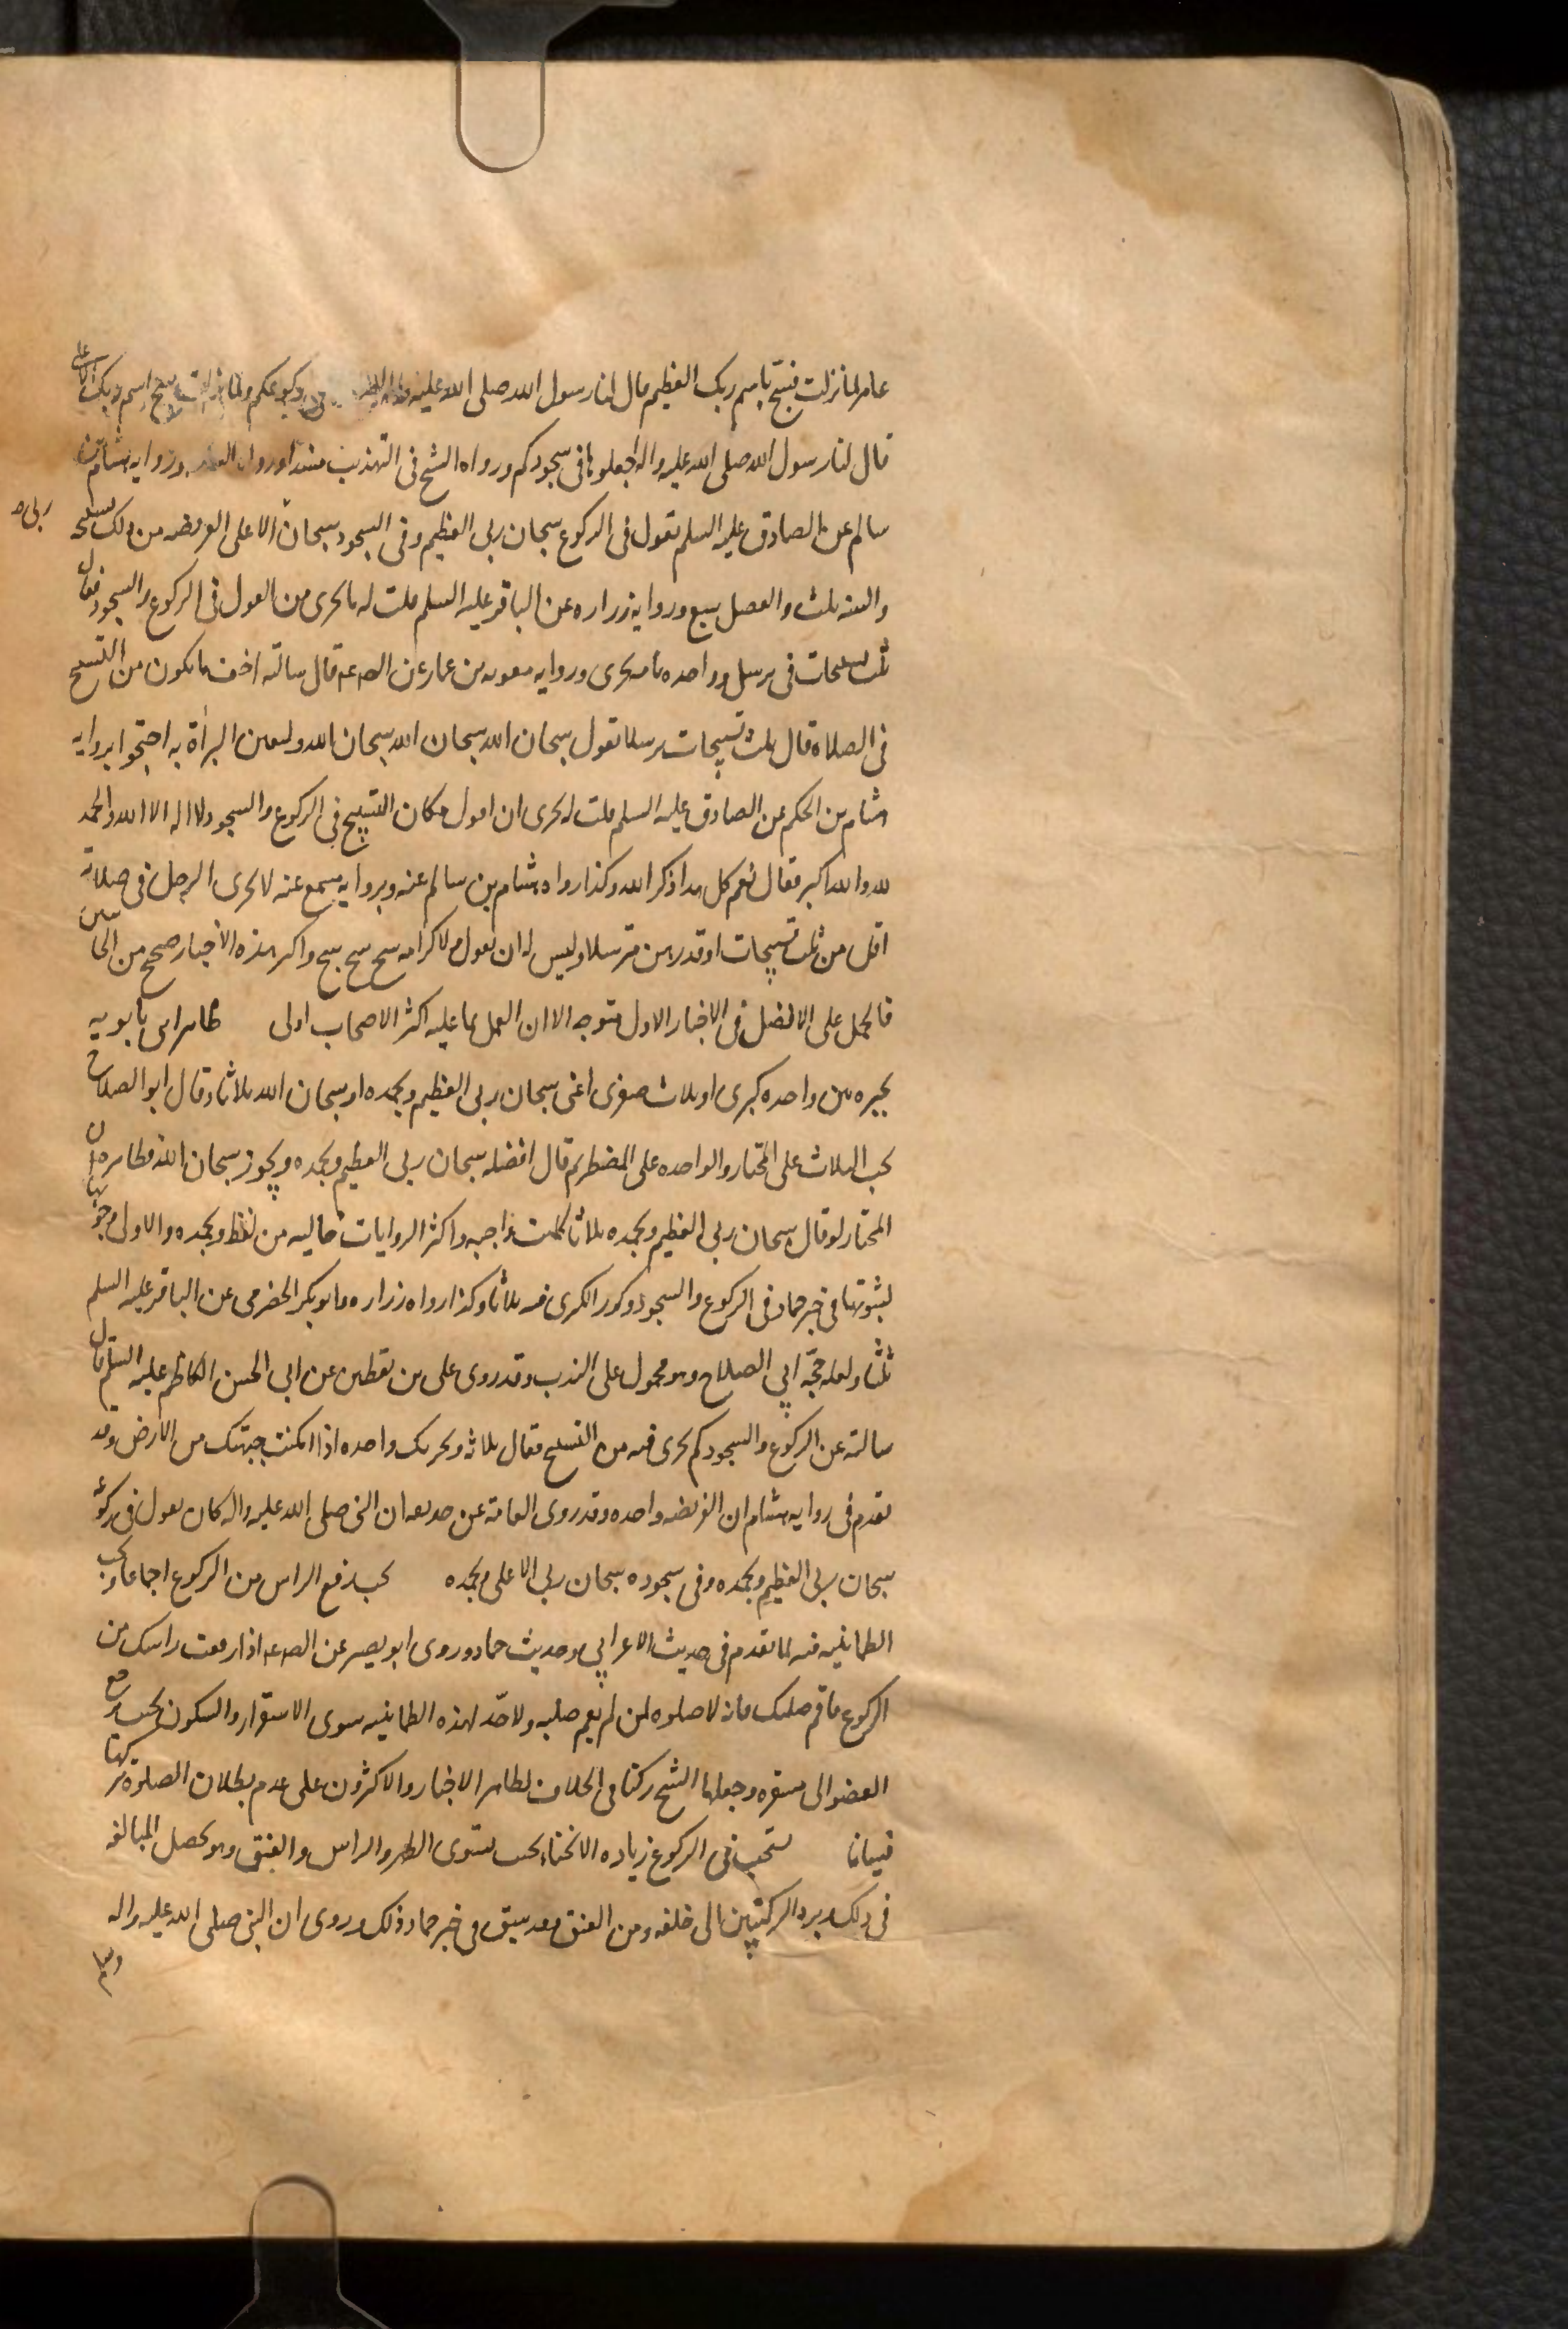 عامر لما نزلت فسبح باسم ربك العظيم قال لنا رسول الله صلى الله عليه واله ركوعكم ولما نزلت سبح اسم ربك الاعلى
قال لنا رسول الله صلى الله عليه واله اجعلوها فى سجودكم ورواه الشيخ فى التهذيب مسندا ورواه وروايه هشام بن
سالم عن الصادق عليه السلم تقول فى الركوع سبحان ربى العظيم وفى السجود سبحان الاعلى الفريضه من ذلك تسبيحه
ربى صح
والسنه ثلث والفضل سبع وروايه زراره عن الباقر عليه السلم قلت له ما يجزى من القول فى الركوع والسجود فقال
ثلث تسبيحات فى ترسل وواحده تامه تجزى وروايه معويه بن عمار عن الص ع م قال سالته اخف ما يكون من التسبيح
فى الصلاة قال ثلث تسبيحات مترسلا تقول سبحان الله سبحان الله سبحان الله ولتعين البرأة به احتجوا بروايه
هشام بن الحكم عن الصادق عليه السلم قلت له يجزى ان اقول مكان التسبيح فى الركوع والسجود لا اله الا الله والحمد
لله والله اكبر فقال نعم كل هذا ذكر الله وكذا رواه هشام بن سالم عنه وبروايه مسمع عنه لا يجزى الرجل فى صلاته
اقل من ثلث تسبيحات او قدرهن مترسلا وليس له ان يقول ولا كرامه سبح سبح سبح واكثر هذه الاخبار صحيح من الجانبين
فالحمل على الافضل فى الاخبار الاول متوجه الا ان العمل بما عليه اكثر الاصحاب اولى ظاهر ابى بابويه
تخيره بين واحده كبرى او ثلاث صغرى اعنى سبحان ربى العظيم وبحمده او سبحان الله ثلاثا وقال ابو الصلاح
يجب الثلاث على المختار والواحده على المضطر ثم قال افضله سبحان ربى العظيم وبحمده ويجوز سبحان الله فظاهره ان
المختار لو قال سبحان ربى العظيم وبحمده ثلاثا كانت واجبه واكثر الروايات خاليه من لفظ وبحمده والاولى وجوبها
لثبوتها فى خبر حماد فى الركوع والسجود وكون الكبرى فيه ثلاثا وكذا رواه زراره وابو بكر الحضرمى عن الباقر عليه السلم
ثلثا ولعله حجة ابي الصلاح وهو محمول على الندب وقد روى على بن يقطين عن ابى الحسن الكاظم عليه السلم قال
سالته عن الركوع والسجود كم يجزى فيه من التسبيح فقال ثلاثه وتجزيك واحده اذا امكنت جبهتك من الارض وقد
تقدم فى روايه هشام ان الفريضه واحده وقد روى العامة عن حذيفه ان النبى صلى الله عليه واله كان يقول فى ركوعه
سبحان ربى العظيم وبحمده وفى سجوده سبحان ربى الاعلى وبحمده يجب رفع الراس من الركوع اجماعا وتجب
الطمانينه فيه لما تقدم فى حديث الاعرابي وحديث حماد وروى ابو بصير عن الص ع م اذا رفعت راسك من
الركوع فاقم صلبك فانه لا صلوه لمن لم يقم صلبه ولا حد لهذه الطمانينه سوى الاستقرار والسكون بحيث يرجع
العضو الى مستقره وجعلها الشيخ ركنا فى الخلاف لظاهر الاخبار والاكثرون على عدم بطلان الصلوة بتركها
نسيانا يستحب فى الركوع زياده الانحناء بحيث يستوى الظهر والراس والعنق وهو يحصل المبالغه
فى ذلك وبرد الركبتين الى خلفه ومن العنق وقد سبق فى خبر حماد ذلك وروى ان النبى صلى الله عليه واله
وسلم